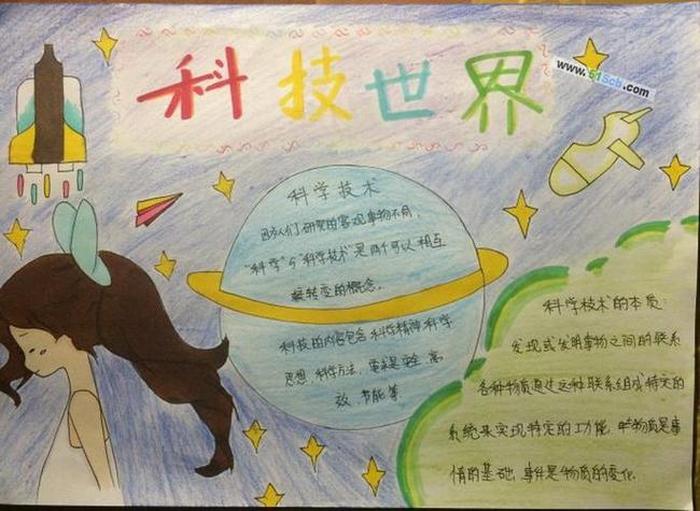 科技世界
www.51Scb.com
科学技术
因人们研究的客观事物不同，
“科学”与“科学技术”是两个可以相互
转变的概念。
科技的内容包含科学精神科学
思想，科学方法，要求是安全、高
效、节能等
科学技术的本质：
发现或发明事物之间的联系
各种物质通过这种联系组成特定的
系统来实现特定的功能，物质是事
情的基础，事件是物质的变化